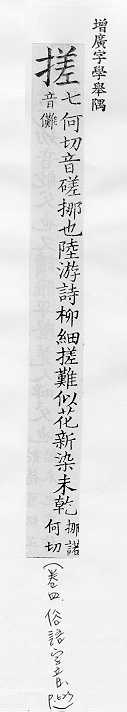 增廣字學舉隅
搓 七何切音磋挪也陸游詩柳細搓難似花新染未乾 挪諾
何切
音儺
(卷四.俗語字音